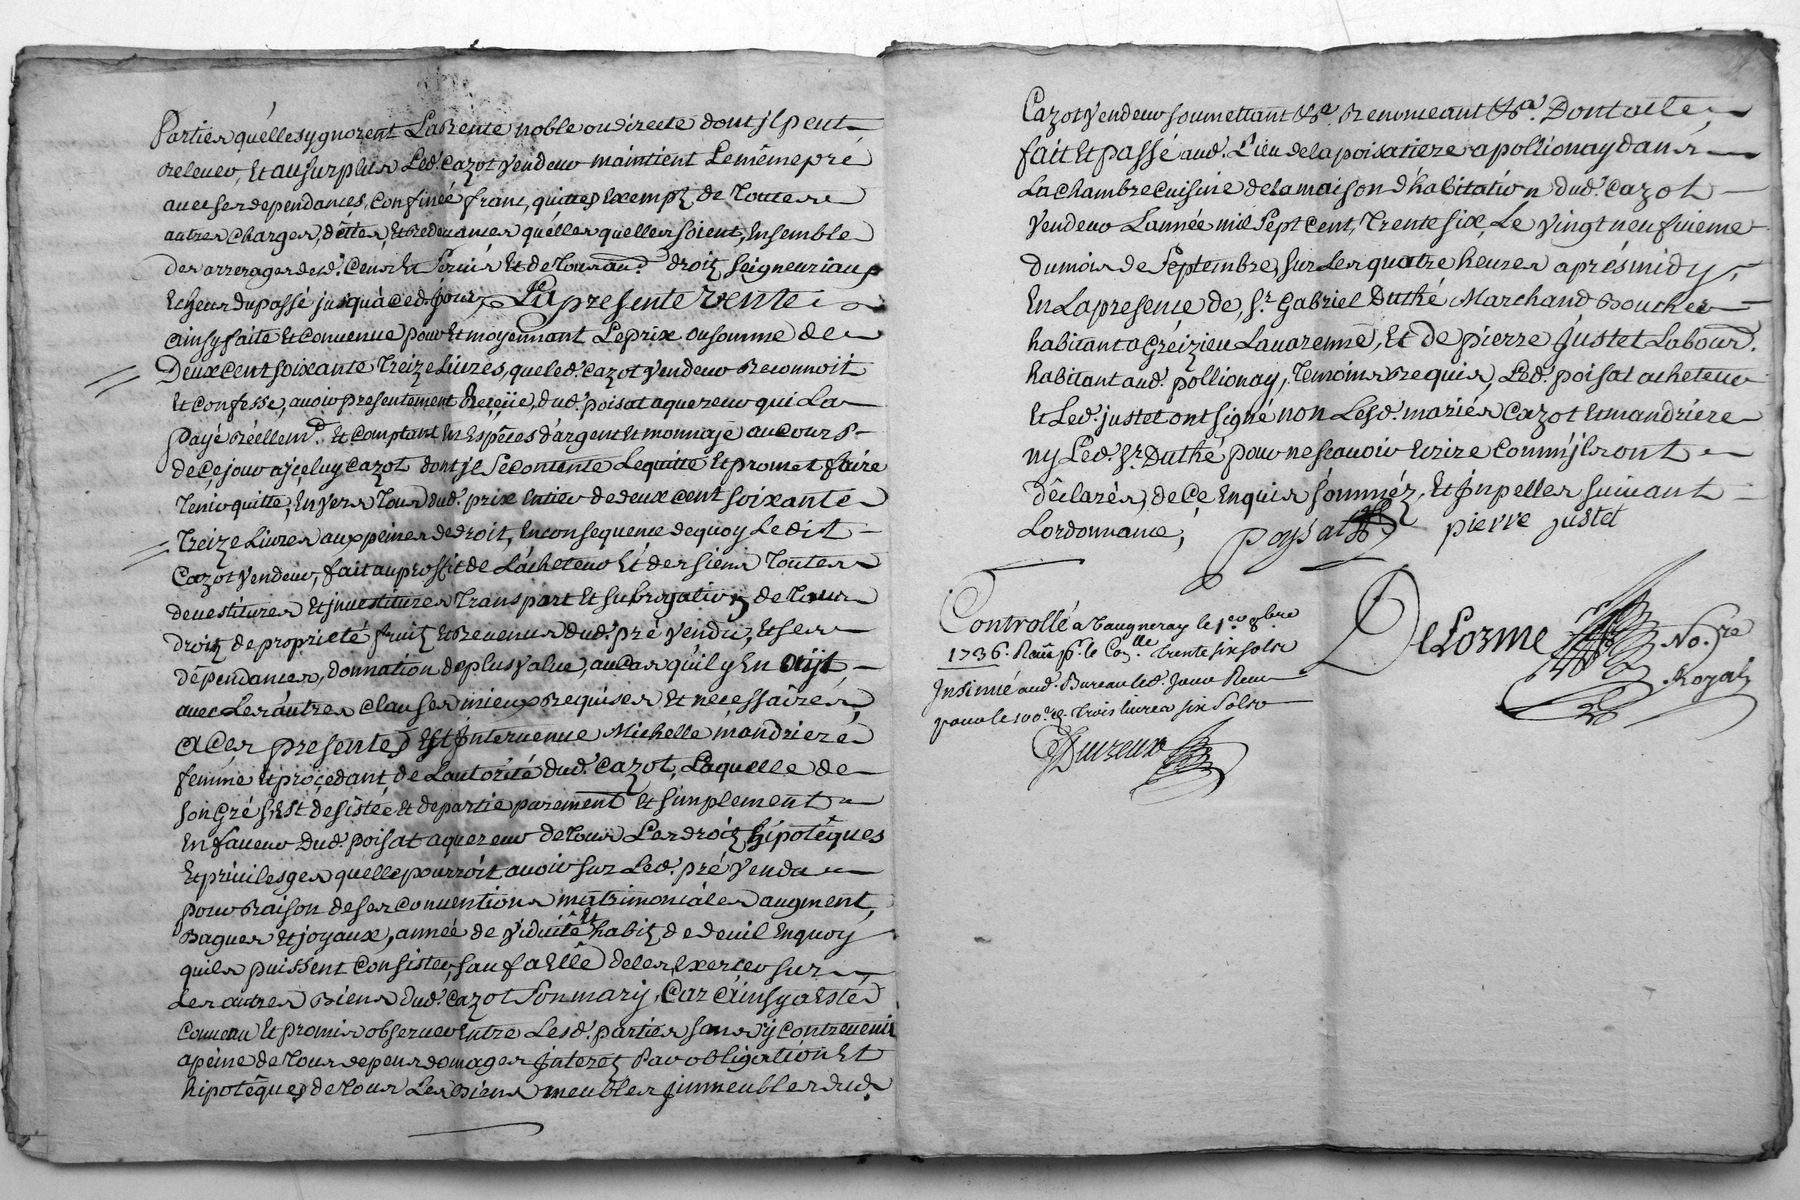 Parties quelles ygnorent La Rente noble ou directe dont jl peut
relever, Et au surplus Led. Cazot vendeur maintient Le même pré
avec ses dependances, Confiné franc, quitte, Exempt de toutes
autres Charges, dêttes, Et Redevances quélles quélles soient, Ensemble
des arrerages desd. Cens Et Servis Et de tous aud. droits, seigneuriaux
Echeus du passé jusqu'à ced. jour, La presente vente
ainsy faite Et Convenue pour Et moyennant Le prix ou somme de
Deux cent soixante Treize Livres, que led. Cazot vendeur Reconnoit
Et Confesse, avoir presentement Reçeüe, dud. poisat aquereur qui La
payé Réellemt. Et Comptant En Espêces d'argent Et monnoye au Cours
de Ce jour a jceluy Cazot dont jl se Contente Le quitte Et promet faire
tenir quitte, Envers tous dud. prix Entier de deux cent soixante
Treize Livres aux peines de droit, En consequence de quoy Ledit
Cazot vendeur, fait au proffit de L'acheteur Et des siens toutes
devestitures Et jnvestitures transport Et subrogation de tous
droits de proprieté fruits Et Revenus dud. pré vendu, Et ses
dépendances, donnation de plus value, au cas qu'il y En oüjt,
avec Les autres clauses mieux Requises Et necessaires,
A Ces presentes Est Jntervenue Michelle mandriere
femme Et proçedant de L'autorité dud. Cazot, Laquelle de
son Gré s'Est desistée et departie purement Et simplement
En faveur Dud. poisat aquereur de tous Les droits hipotêques
Et privileges quelle pourroit avoir sur Led. pré vendu
pour Raison de ses conventions matrimoniales augment,
Bagues Et joyaux, année de viduité Et habits de deuil En quoy
quils puissent Consister, sauf a Elle de les Exercer sur
Les autres Biens dud. Cazot son mary, Car Ainsy a Esté
Convenu Et promis observer Entre Lesd. parties sans y Contrevenir
a peine de tous depens domages Jnterets Par obligation Et
hipotêques de tous Les Biens meubles jmmeubles dud.
Cazot vendeur soumettant &a. Renonceant &a. Dont acte,
fait Et passé aud. Lieu de la poisatiere a pollionay dans
La chambre cuisine de la maison d'habitation dud. Cazot
vendeur L'année mil sept cent, Trente six, Le vingt neufvieme
du mois de Septembre, sur Les quatre heures aprés midy,
En La presence de, Sr. Gabriel Duthé Marchand Boucher
habitant a Gréizieu Lavarenne, Et de pierre Justet Labour.
habitant aud. pollionay, temoins Requis, Led. poisat acheteur
Et Led. justet ont signé non Lesd. mariés Cazot Et mandriere
ny Led. Sr. Duthé pour ne scavoir Ecrire Comm'jls ont
déclarés, de Ce Enquis sommez, Et Jnpellés suivant
Lordonnance,
poysat pierre justet
Controllé a Vaugneray le 1er. 8bre
1736. Reçu pr. le Conlle. trente six sols
DeLorme No.re
Royal
Jnsinué aud. Bureau led. Jour Reçu
pour le 100e. trois livres six sols